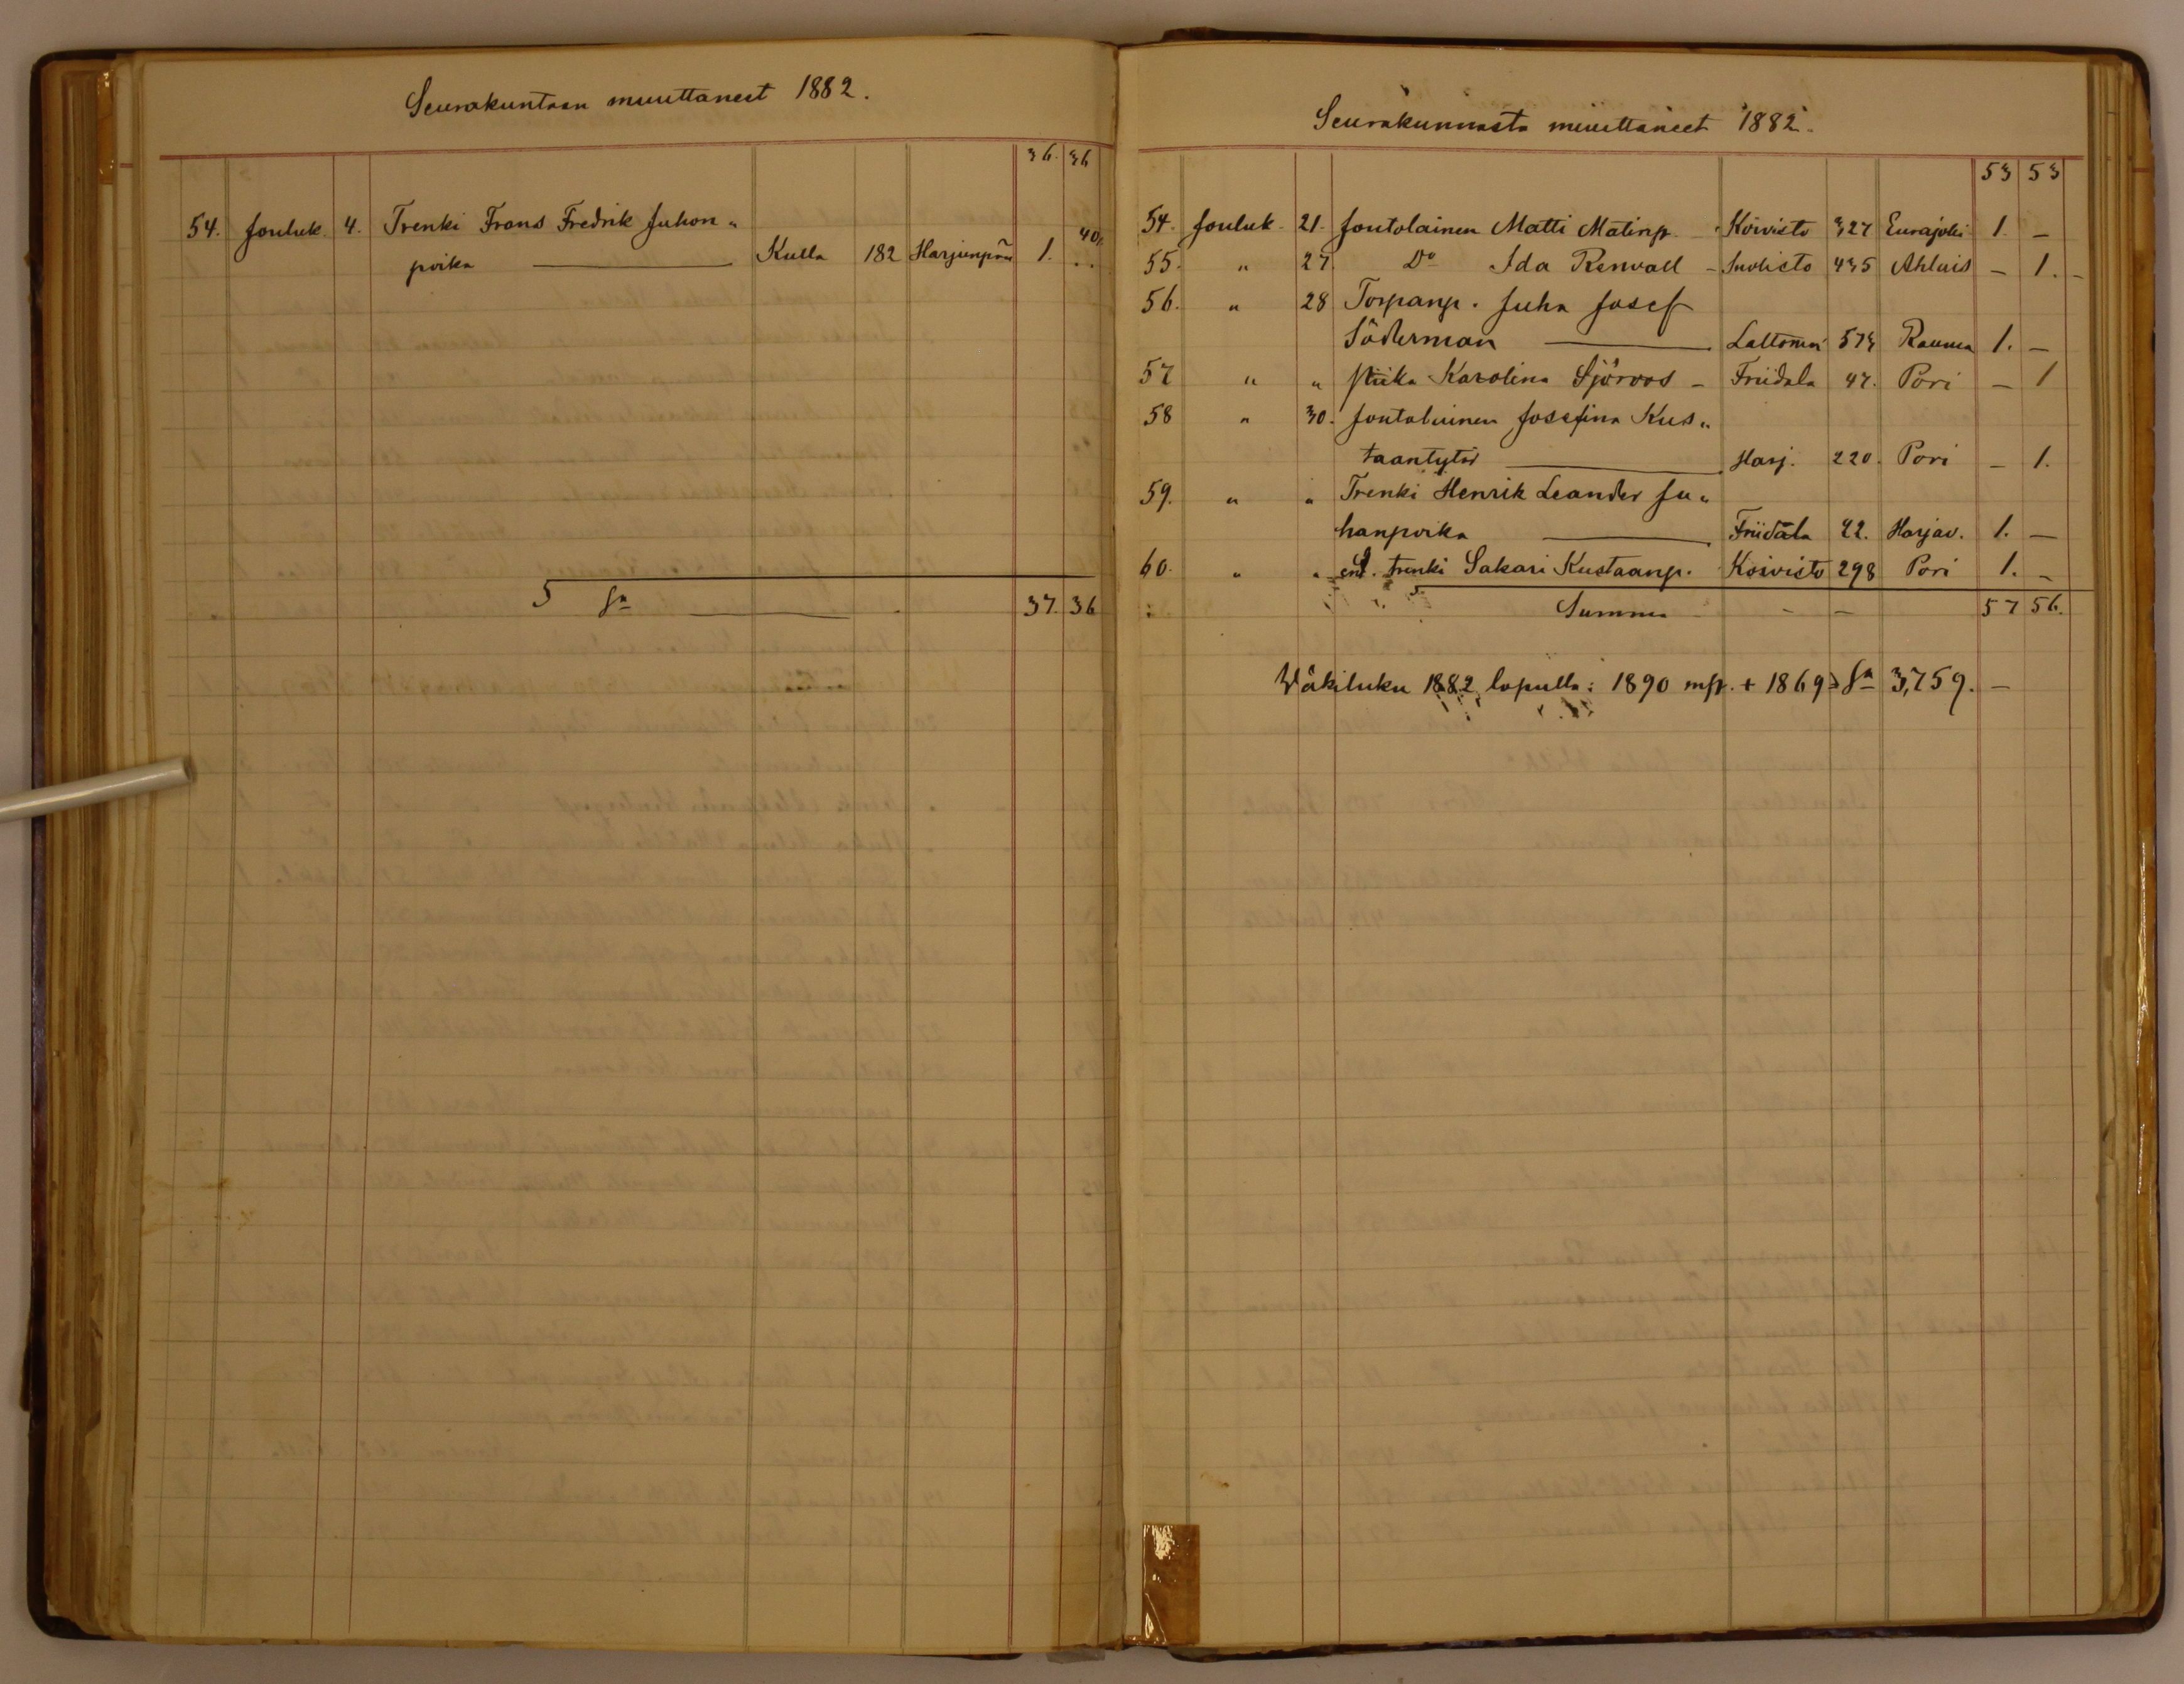 Seurakuntaan muuttaneet 1882.
36. 36
54. Jouluk. 4. Trenki Frans Fredrik Juhon„
poika — Kulla 182 Harjunpää 1. 40.
Sa — 37. 36
Seurakunnasta muuttaneet 1882.
53 53
54. Jouluk. 21. Joutolainen Matti Matinp. Koivisto 327 Eurajoki 1. —
55. „ 27 Do Ida Renvall — Suolisto 435 Ahlais — 1.
56. „ 28 Torpanp. Juha Josef
Söderman — Lattomeri 573 Rauma 1. —
57 „ „ Piika Karolina Sjöroos — Friidala 47. Pori — 1
58 „ 30. Joutolainen Josefina Kus„
taantytär — Harj. 220. Pori — 1.
59. „ „ Trenki Henrik Leander Ju„
hanpoika — Friidala 22. Harjav. 1. —
60. „ „ ent. trenki Sakari Kustaanp. Koivisto 298 Pori 1. —
Summa — — 57 56.
Wäkiluku 1882 lopulla: 1890 mp. + 1869 Sa 3,759. —